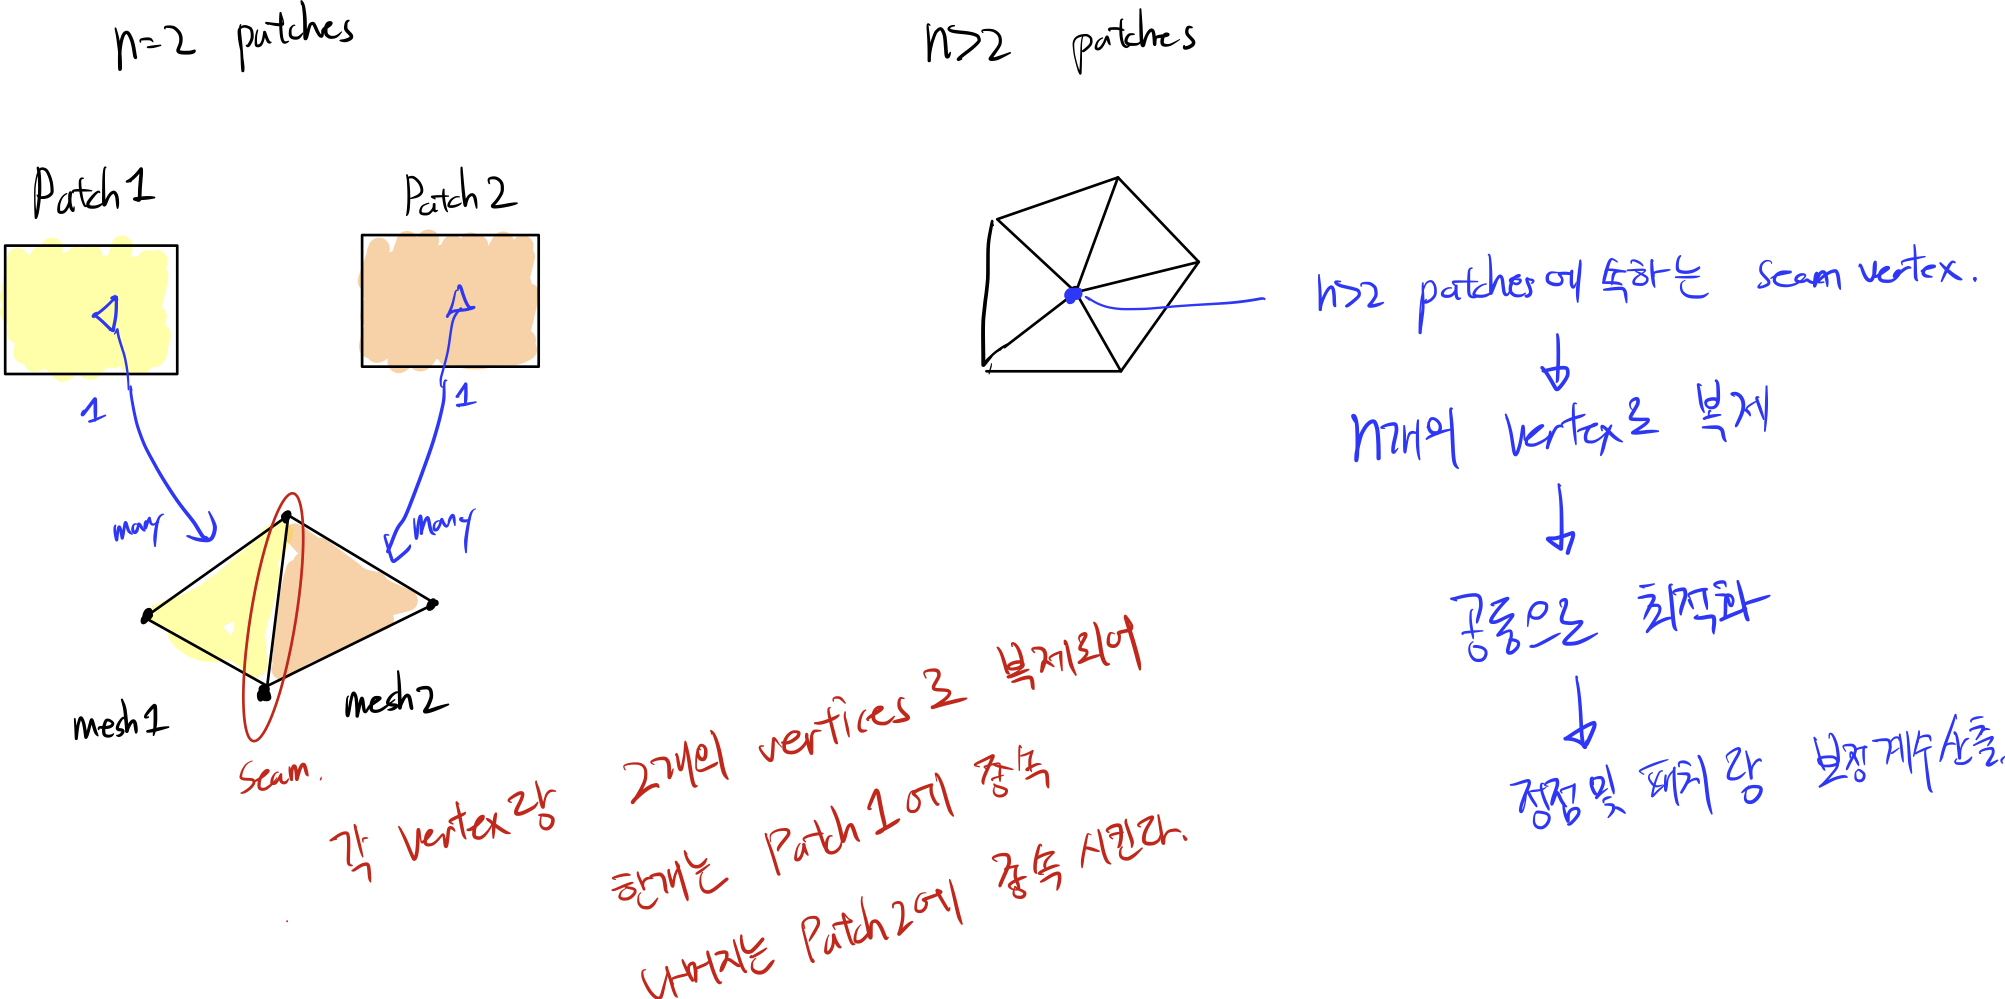 n=2 patches
n>2 patches
Patch 1
Patch 2
1
1
many
many
mesh1
mesh2
seam.
각 vertex랑 2개의 vertices로 복제되어
한개는 Patch 1에 종속
나머지는 Patch 2에 종속 시킨다.
n>2 patches에 속하는 seam vertex.
n개의 vertex로 복제
공동으로 최적화
정점 및 패치랑 보정계수산출.